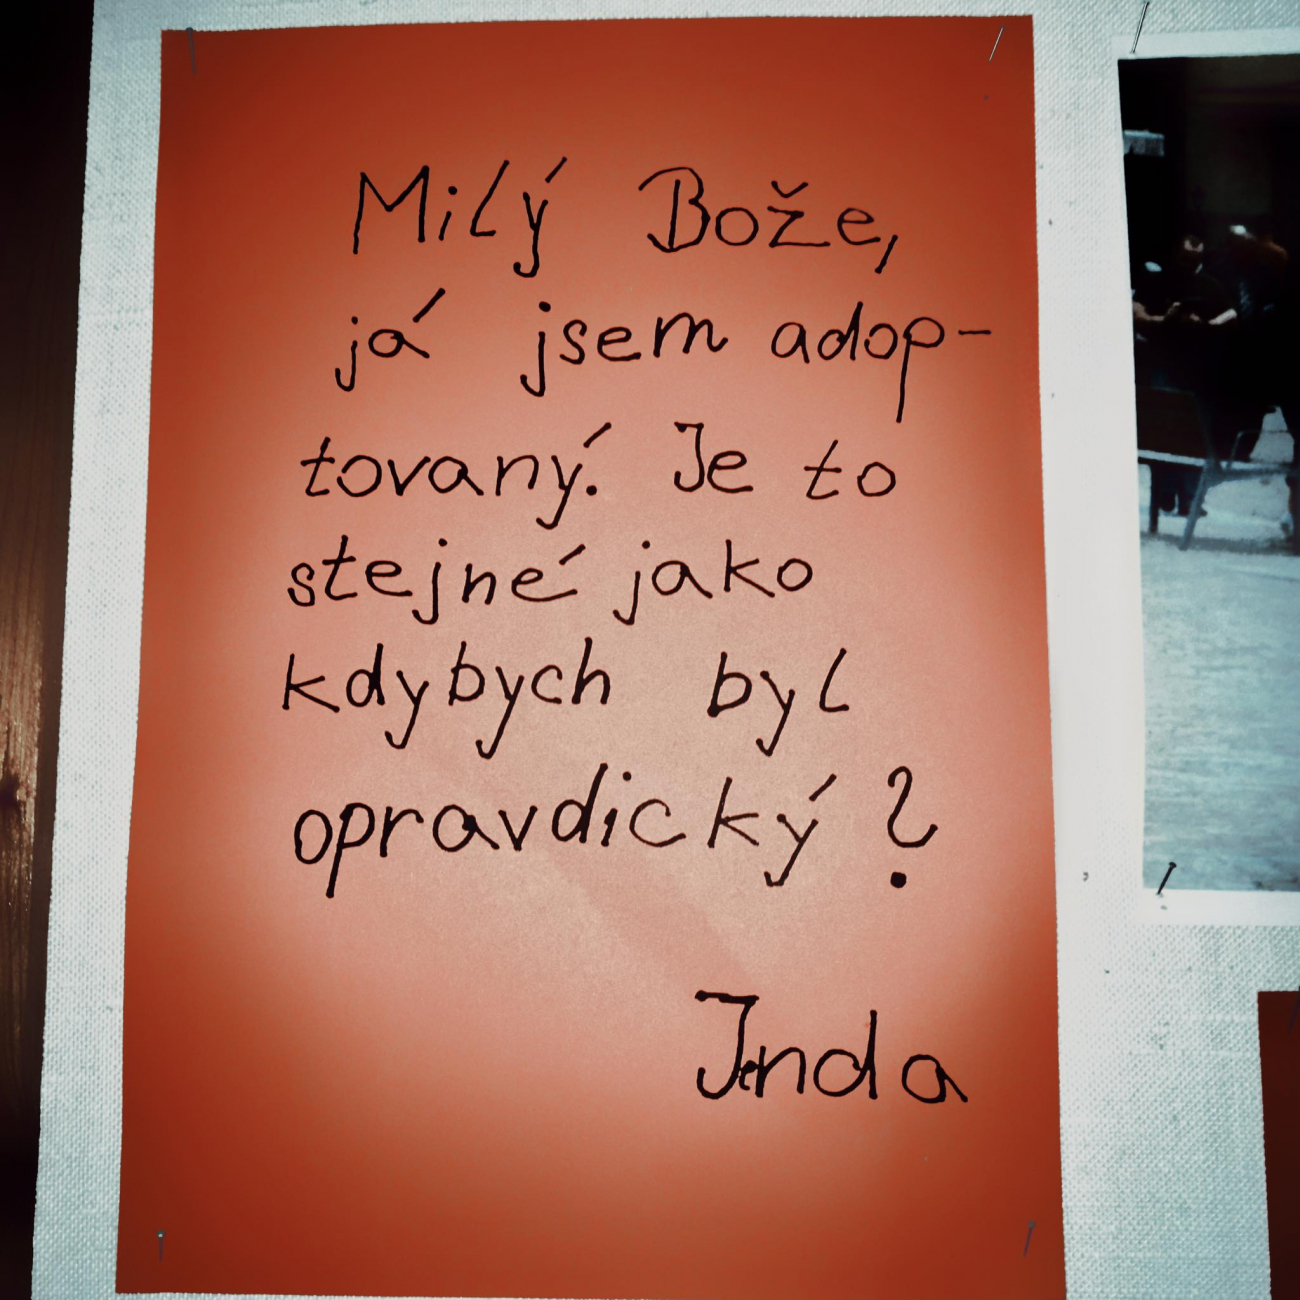 Milý Bože,
já jsem adop-
tovaný. Je to
stejné jako
kdybych byl
opravdický?
Jenda